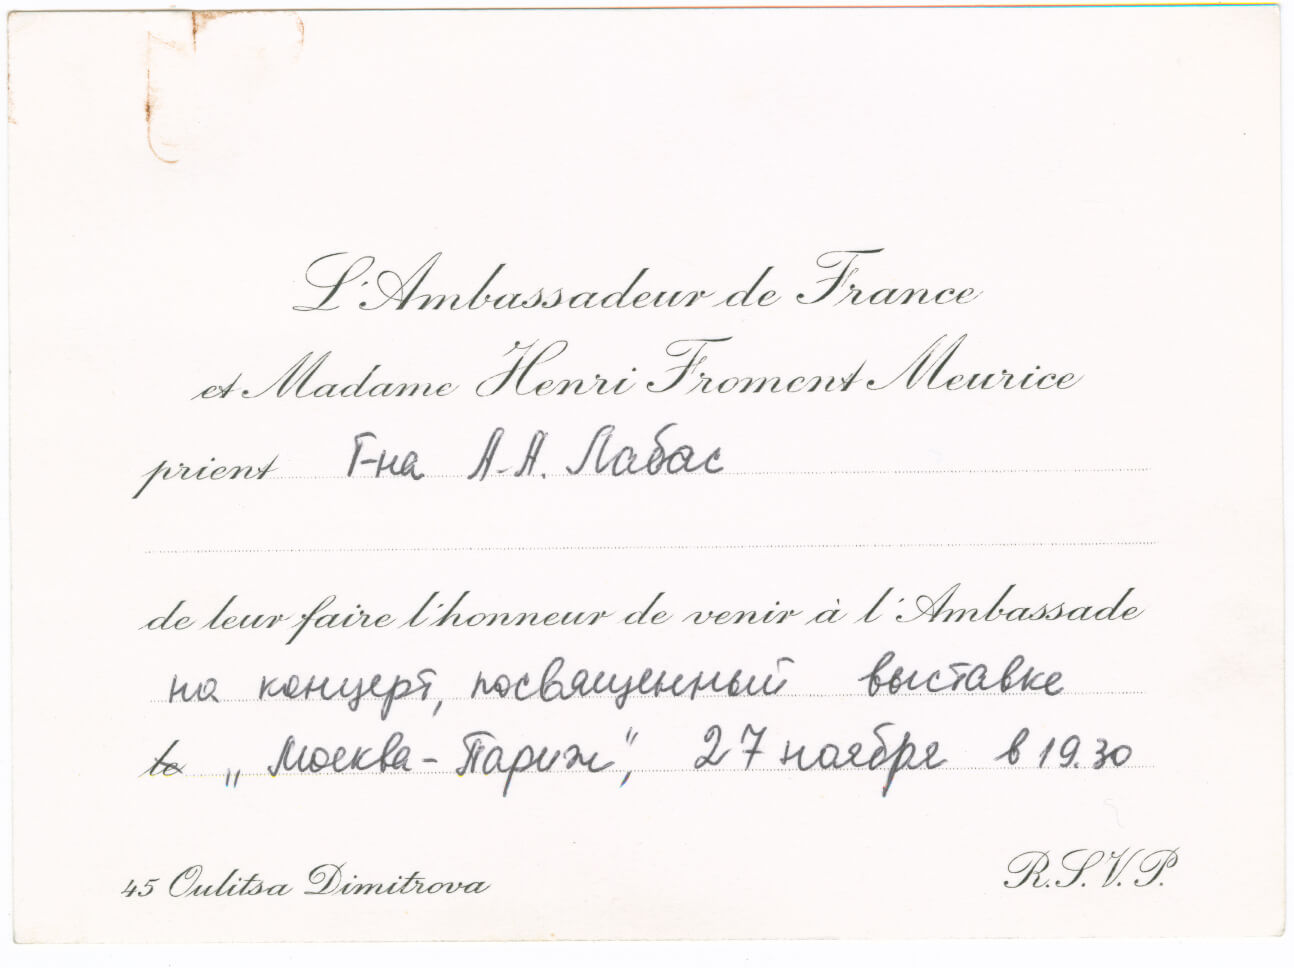 L'Ambassadeur de France
et Madame Henri Froment Meurice
prient Г-на А.А. Лабас
de leur faire l'honneur de venir à l'Ambassade
на концерт, посвященный выставке
le „Москва-Париж“, 27 ноября в 19.30
45 Oulitsa Dimitrova R.S.V.P.